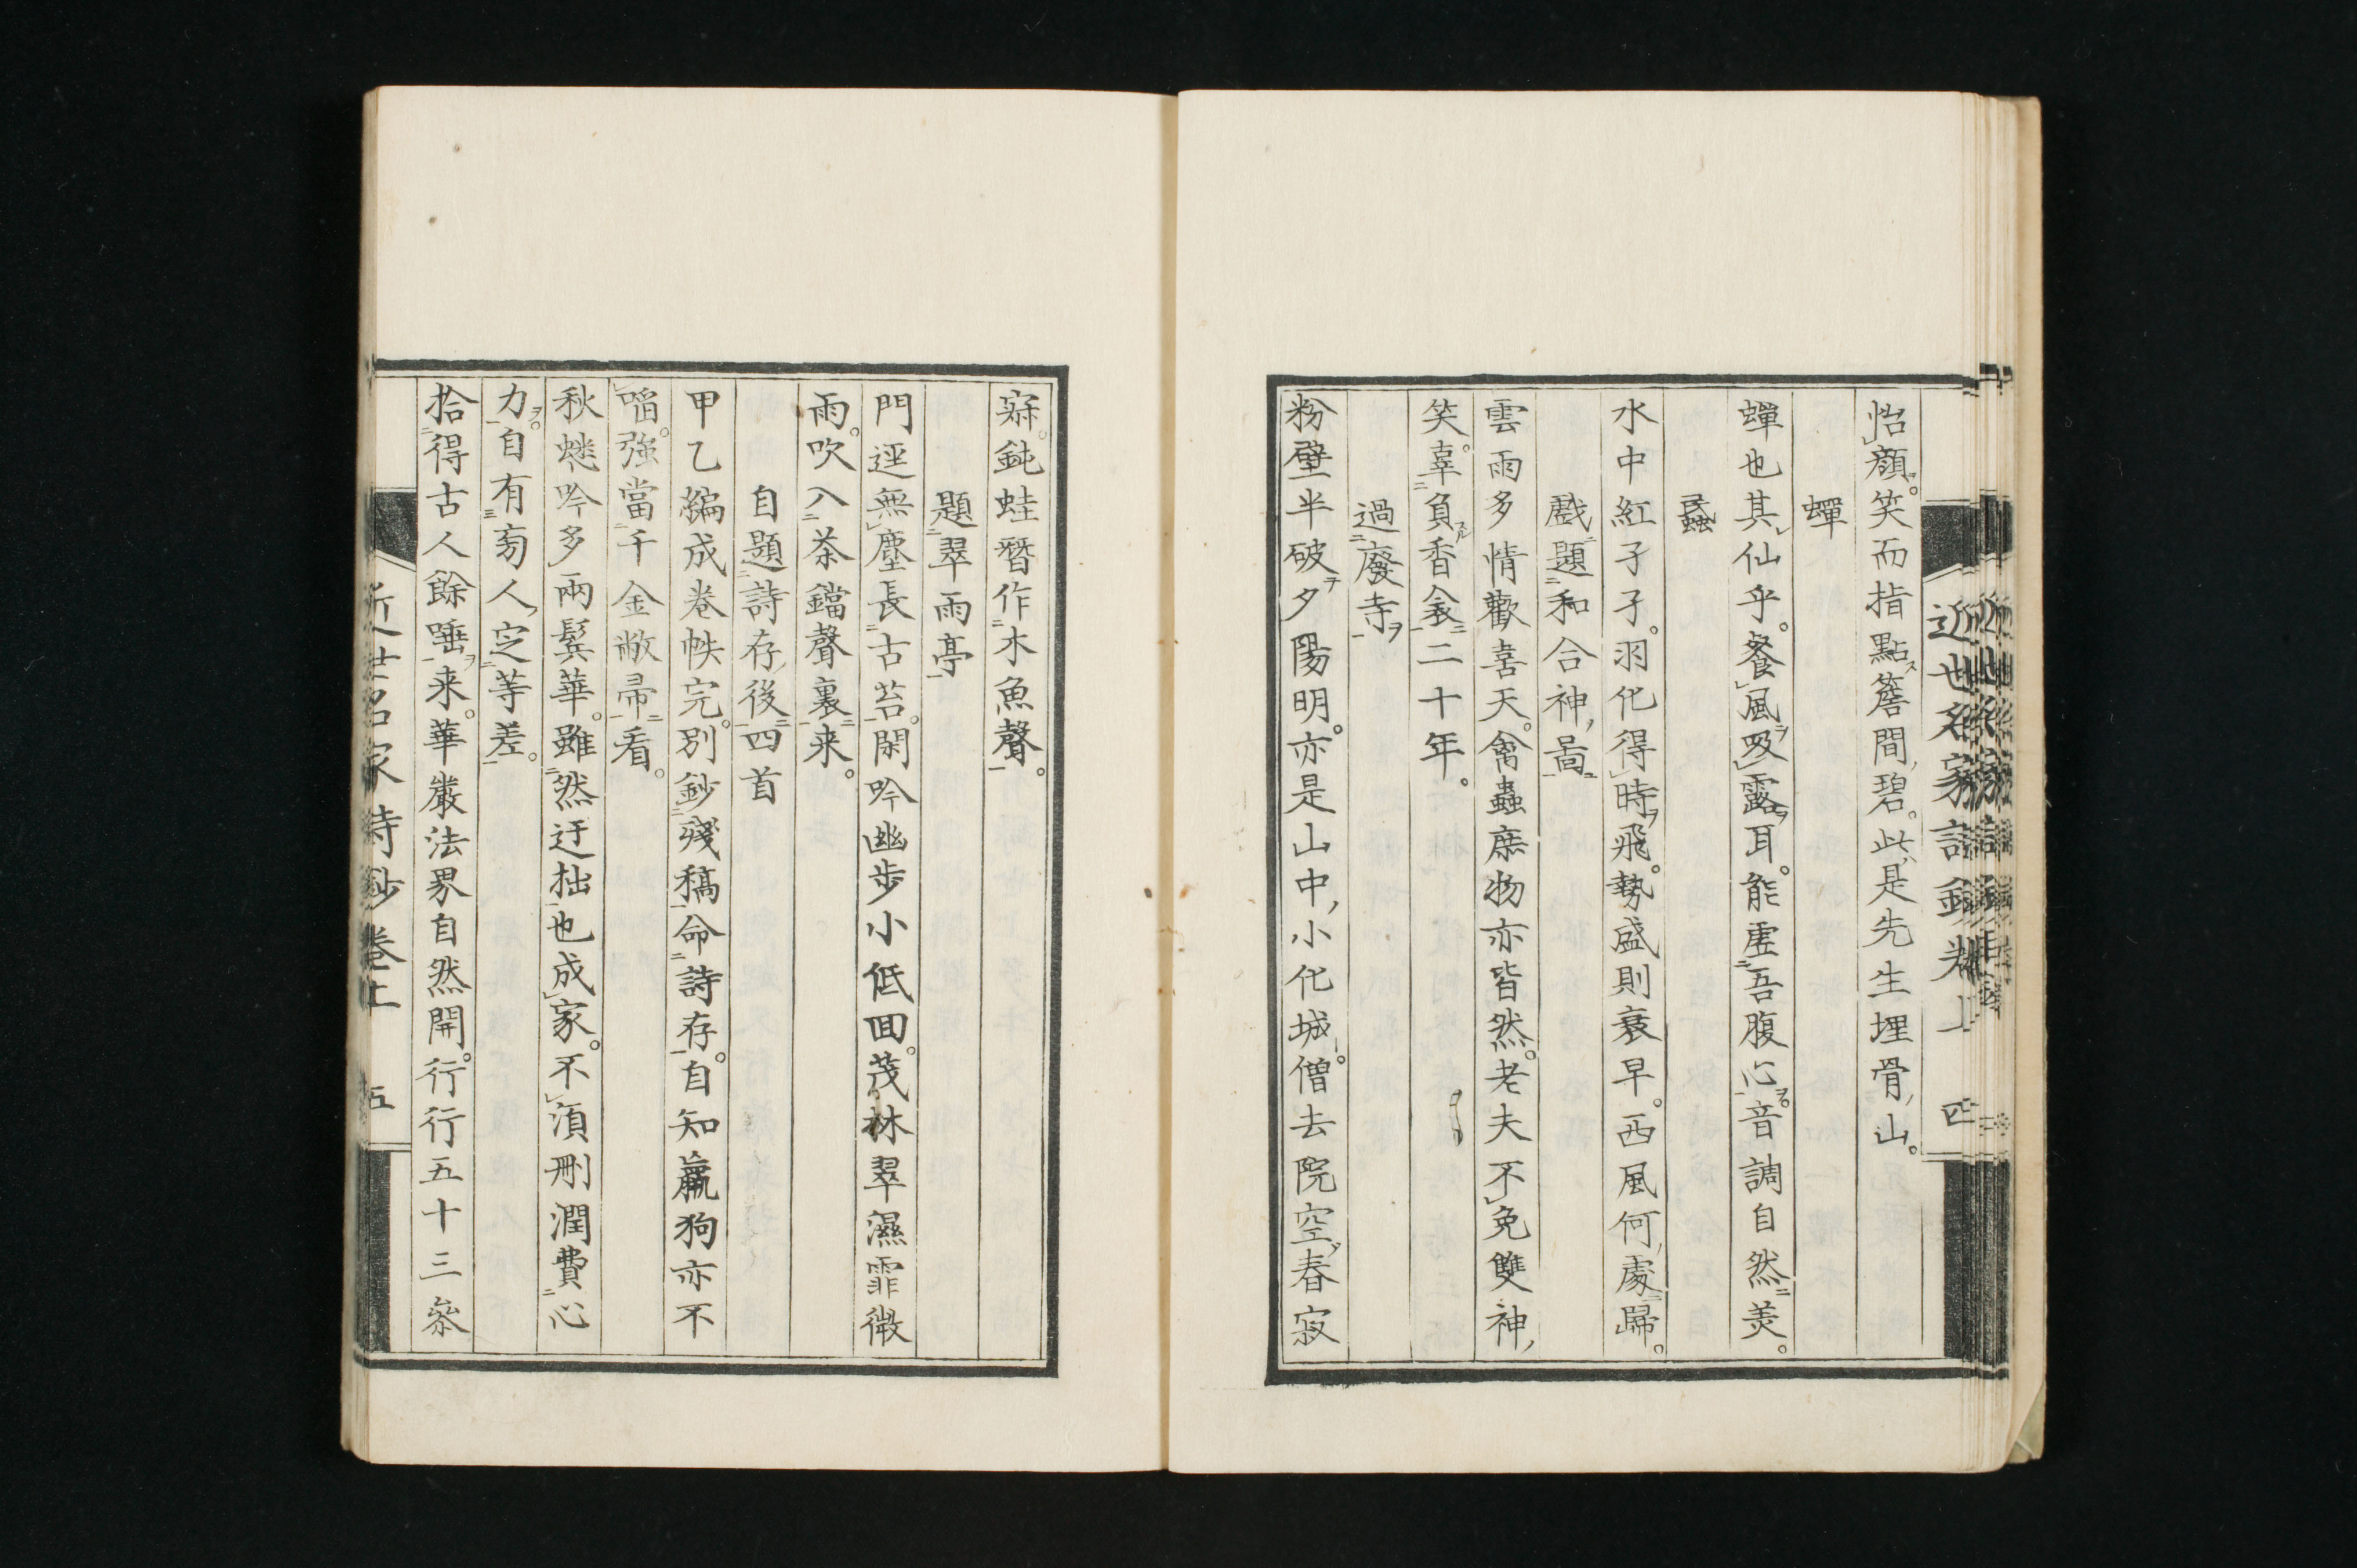 近世名家詩鈔卷上　四
怡顏笑而指點簷間碧。此是先生埋骨山。
蟬
蟬也其仙乎。餐風吸露耳。能虛吾腹心。音調自然美。
蟁
水中紅孑孑。羽化得時飛。勢盛則衰早。西風何處歸。
戲題和合神圖
雲雨多情歡喜天。禽蟲庶物亦皆然。老夫不免雙神
笑。辜負香衾二十年。
過廢寺
粉壁半破夕陽明。亦是山中小化城。僧去院空春寂
寐。鈍蛙暫作木魚聲。
題翠雨亭
門逕無塵長古苔。閑吟幽步小低回。茂林翠濕霏微
雨。吹入茶鐺聲裏来。
自題詩存後四首
甲乙編成卷帙完。別鈔殘稿命詩存。自知羸狗亦不
㗖。強當千金敝帚看。
秋蟋吟多兩鬢華。雖然迂拙也成家。不須刪潤費心
力。自有旁人定等差。
拾得古人餘唾来。華嚴法界自然開。行行五十三參
近世名家詩鈔卷上　五